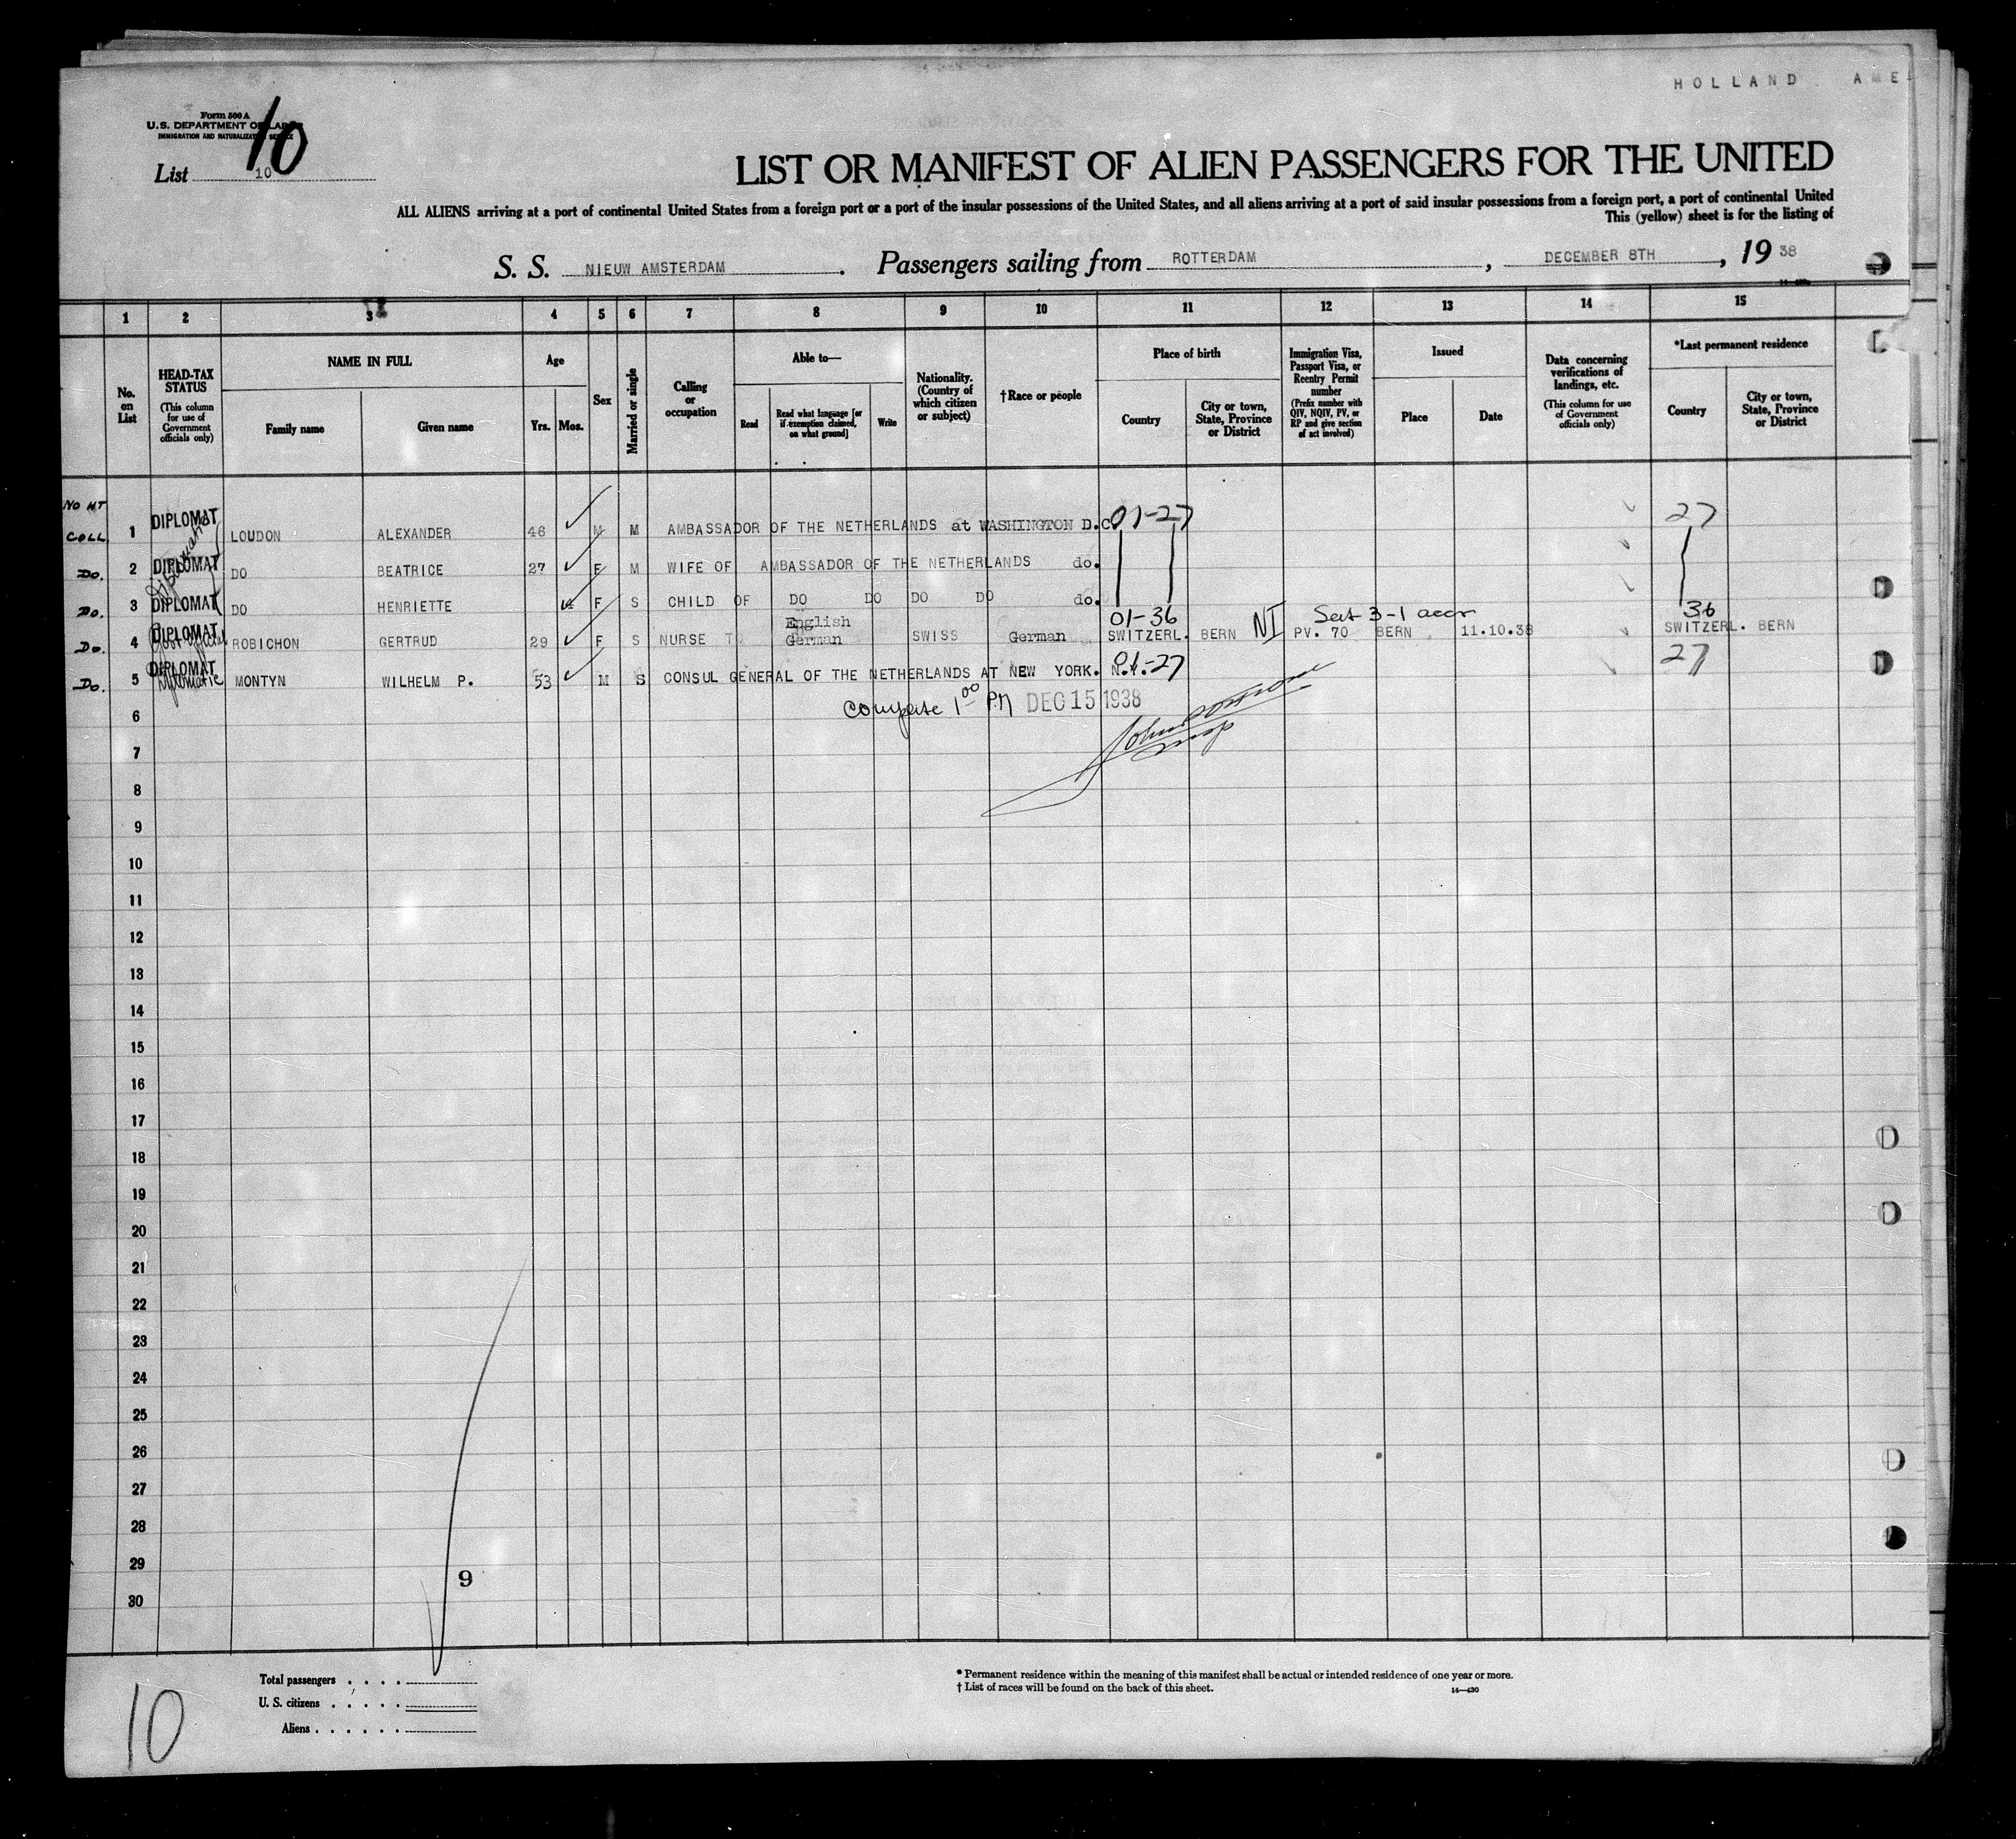 HOLLAND AME
Form 500 A
U.S. DEPARTMENT OF LABOR
IMMIGRATION AND NATURALIZATION SERVICE
10
List 10
LIST OR MANIFEST OF ALIEN PASSENGERS FOR THE UNITED
ALL ALIENS arriving at a port of continental United States from a foreign port or a port of the insular possessions of the United States, and all aliens arriving at a port of said insular possessions from a foreign port, a port of continental United
This (yellow) sheet is for the listing of
S. S. NIEUW AMSTERDAM. Passengers sailing from ROTTERDAM, DECEMBER 8TH, 19 38
1 2 3 4 5 6 7 8 9 10 11 12 13 14 15
No. on List
HEAD-TAX STATUS (This column for use of Government officials only)
NAME IN FULL
Family name
Given name
Age
Yrs. Mos.
Sex
Married or single
Calling or occupation
Able to—
Read
Read what language [or if exemption claimed, on what ground]
Write
Nationality. (Country of which citizen or subject)
†Race or people
Place of birth
Country
City or town, State, Province or District
Immigration Visa, Passport Visa, or Reentry Permit number (Prefix number with QIV, NQIV, PV, or RP and give section of act involved)
Issued
Place
Date
Data concerning verifications of landings, etc. (This column for use of Government officials only)
*Last permanent residence
Country
City or town, State, Province or District
NO HT
COLL 1 DIPLOMAT LOUDON ALEXANDER 46 M M AMBASSADOR OF THE NETHERLANDS at WASHINGTON D.C. 01-27 27
DO. 2 DIPLOMAT DO BEATRICE 27 F M WIFE OF AMBASSADOR OF THE NETHERLANDS do.
DO. 3 DIPLOMAT DO HENRIETTE F S CHILD OF DO DO DO DO do.
English 01-36 Sect 3-1 accr 36
DO. 4 DIPLOMAT ROBICHON GERTRUD 29 F S NURSE German SWISS German SWITZERL. BERN NI PV. 70 BERN 11.10.38 SWITZERL. BERN
DO. 5 DIPLOMAT MONTYN WILHELM P. 53 M S CONSUL GENERAL OF THE NETHERLANDS AT NEW YORK. N.Y. 01-27 27
6 1 00 P.M DEC 15 1938
7
8
9
10
11
12
13
14
15
16
17
18
19
20
21
22
23
24
25
26
27
28
29
9
30
Total passengers . . . .
U. S. citizens . . . . .
Aliens . . . . . .
* Permanent residence within the meaning of this manifest shall be actual or intended residence of one year or more.
† List of races will be found on the back of this sheet. 14—430
10